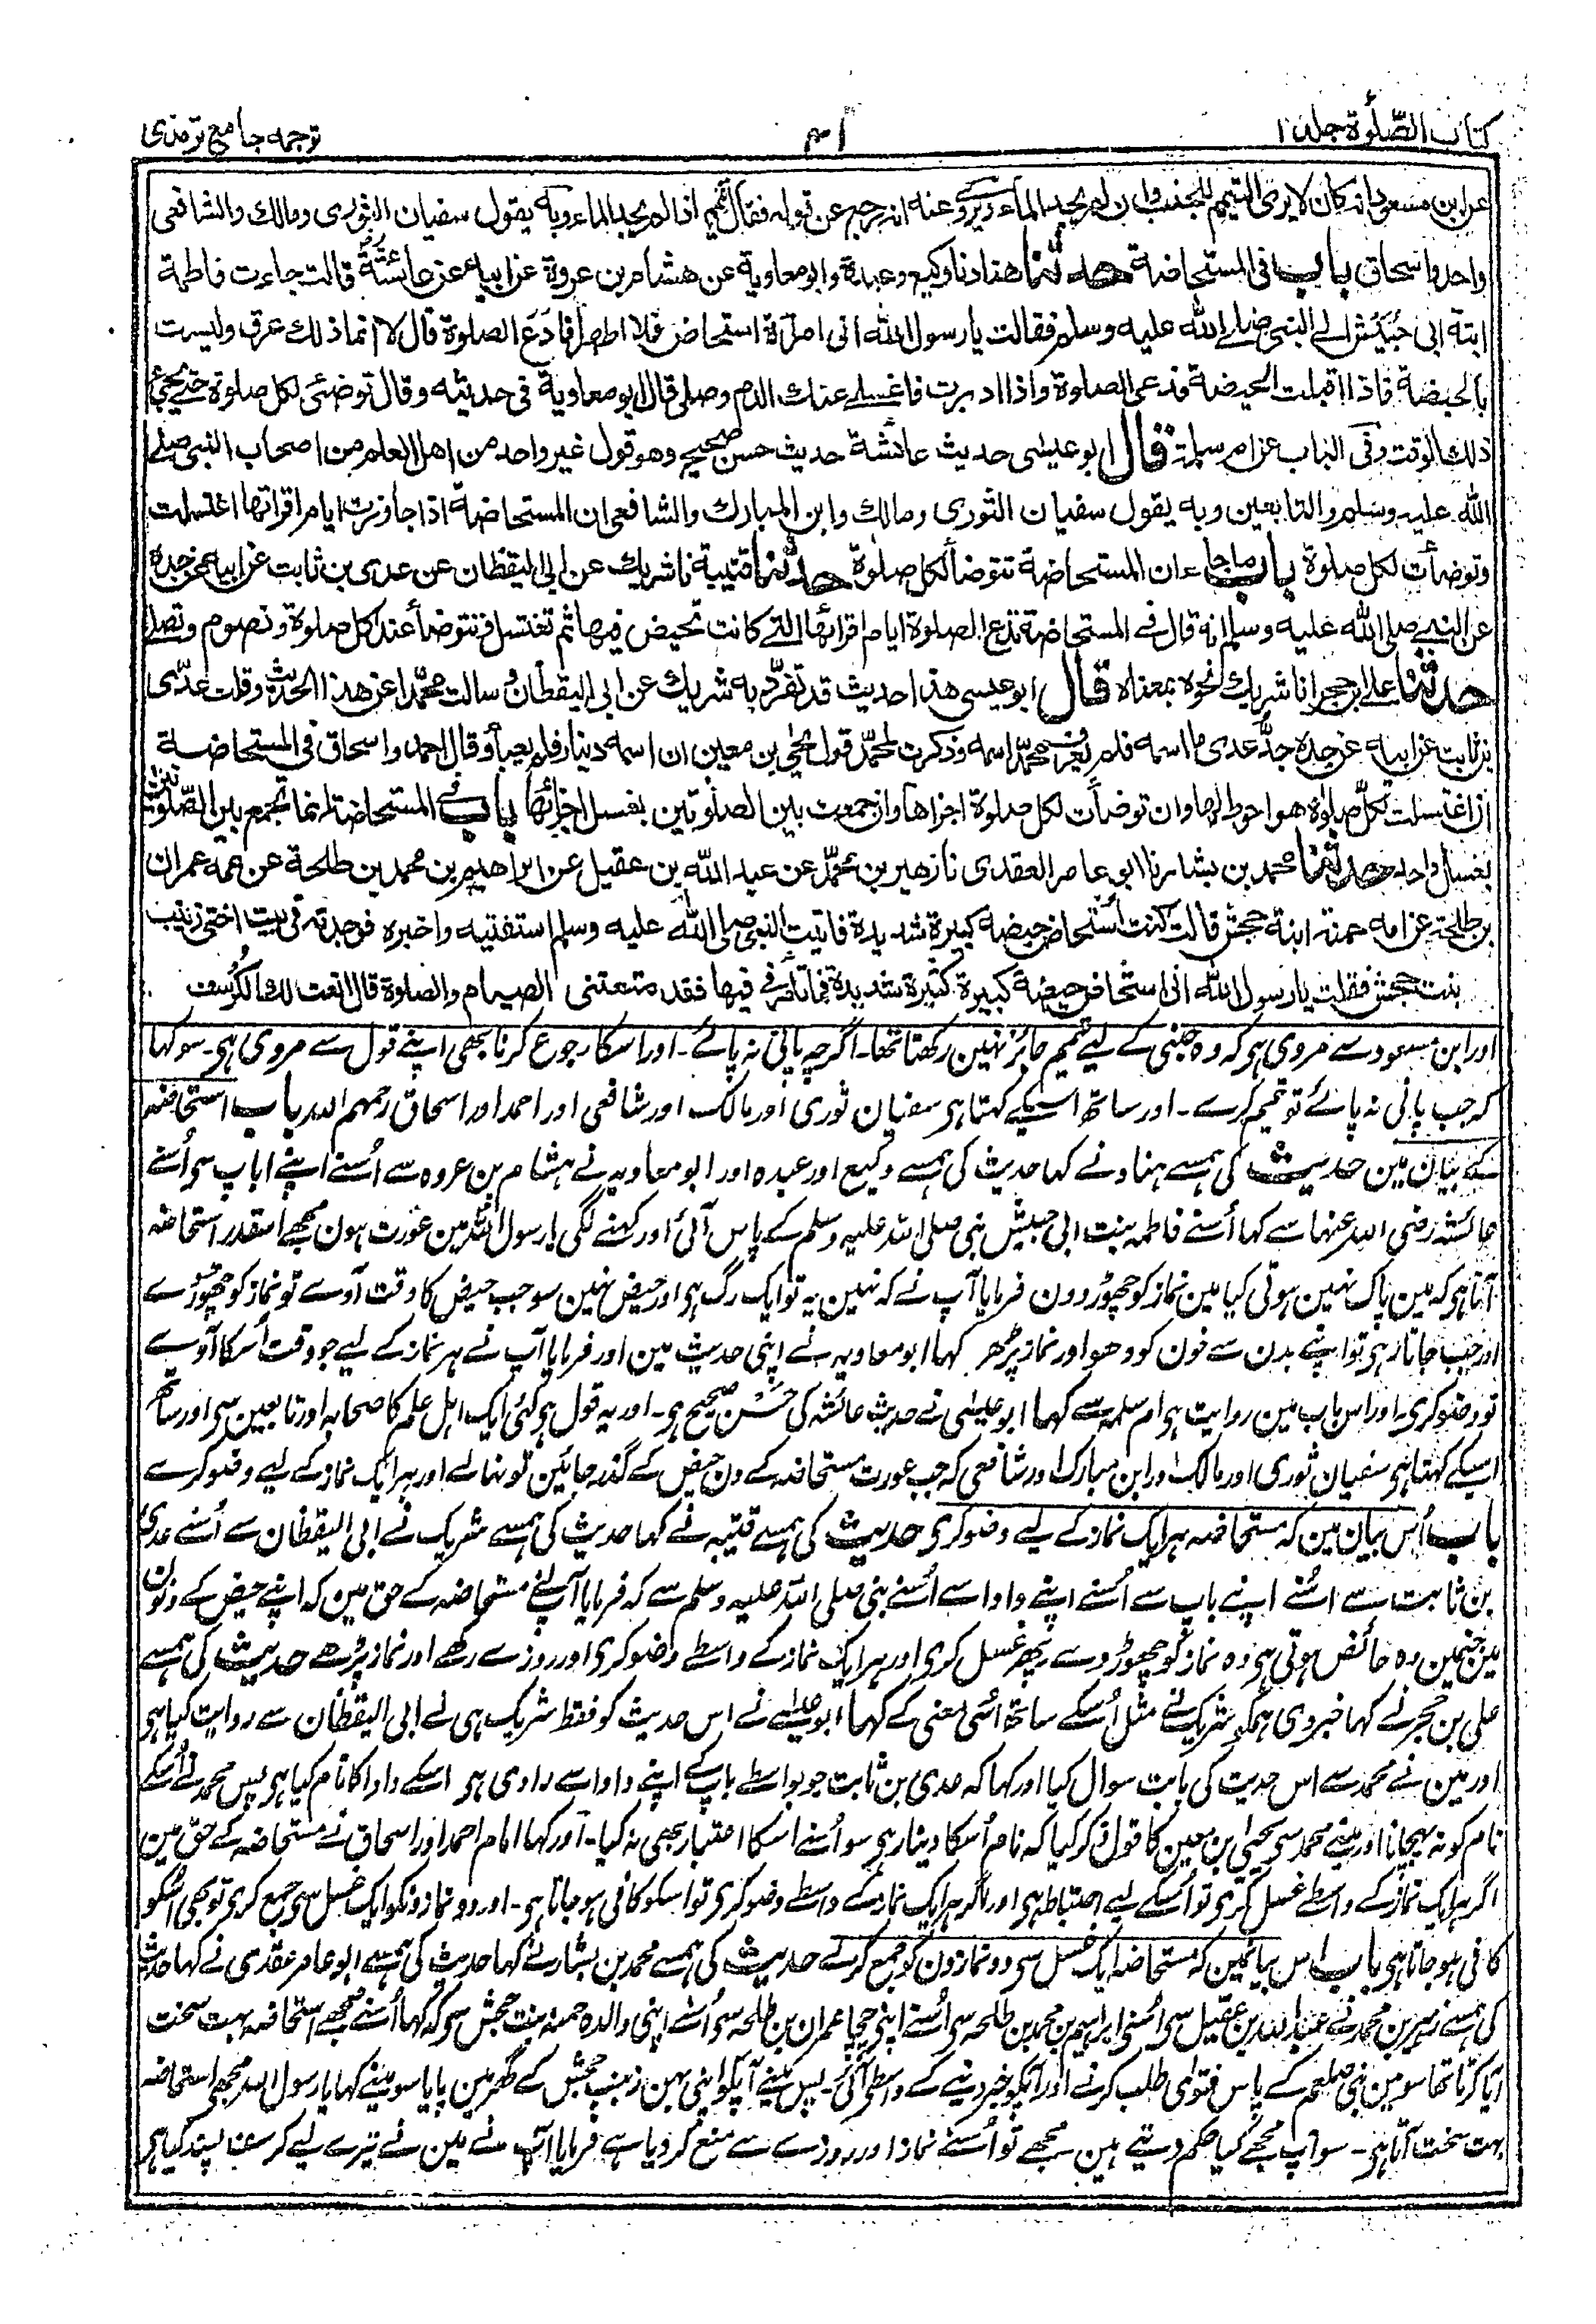 کتاب الصّلوٰة جلد ۱
۴۱
ترجمه جامع ترمذی
عن ابن مسعود انه كان لا يرى التيمم للجنب وان لم يجد الماء ويروى عنه انه رجع عن قوله فقال تيمم اذا لم يجد الماء وبه يقول سفيان الثورى ومالك والشافعى
واحمد واسحاق باب فى المستحاضة حدثنا هناد نا وكيع وعبدة وابو معاوية عن هشام بن عروة عن ابيه عن عائشة قالت جاءت فاطمة
ابنة ابى حبيش الى النبى صلى الله عليه وسلم فقالت يا رسول الله انى امرأة استحاض فلا اطهر افادع الصلوة قال لا انما ذلك عرق وليست
بالحيضة فاذا اقبلت الحيضة فدعى الصلوة واذا ادبرت فاغسلى عنك الدم وصلى قال ابو معاوية فى حديثه وقال توضئى لكل صلوة حتى يجئ
ذلك الوقت وفى الباب عن ام سلمة قال ابو عيسى حديث عائشة حديث حسن صحيح وهو قول غير واحد من اهل العلم من اصحاب النبى صلى
الله عليه وسلم والتابعين وبه يقول سفيان الثورى ومالك وابن المبارك والشافعى ان المستحاضة اذا جاوزت ايام اقرائها اغتسلت
وتوضأت لكل صلوة باب ماجاء ان المستحاضة تتوضأ لكل صلوة حدثنا قتيبة نا شريك عن ابى اليقظان عن عدى بن ثابت عن ابيه عن جده
عن النبى صلى الله عليه وسلم انه قال فى المستحاضة تدع الصلوة ايام اقرائها التى كانت تحيض فيها ثم تغتسل فتتوضأ عند كل صلوة وتصوم وتصلى
حدثنا على بن حجر انا شريك نحوه بمعناه قال ابو عيسى هذا حديث قد تفرّد به شريك عن ابى اليقظان وسالت محمدا عن هذا الحديث وقلت عدّى
بن ثابت عن ابيه عن جده جدّ عدى ما اسمه فلم يعرف محمّد اسمه وذكرت لمحمّد قول يحيى بن معين ان اسمه دينار فلم يعبأ وقال احمد واسحاق فى المستحاضة
ان اغتسلت لكلّ صلوة هو احوط لها وان توضأت لكل صلوة اجزاها وان جمعت بين الصلوتين بغسل اجزاها باب فى المستحاضة انها تجمع بين الصّلوتين
بغسل واحد حدثنا محمد بن بشار نا ابو عامر العقدى نا زهير بن محمّد عن عبد الله بن عقيل عن ابراهيم بن محمد بن طلحة عن عمه عمران
بن طلحة عن امه حمنة ابنة جحش قالت كنت استحاض حيضة كبيرة شديدة فاتيت النبى صلى الله عليه وسلم استفتيه واخبره فوجدته فى بيت اختى زينب
بنت جحش فقلت يا رسول الله انى استحاض حيضة كبيرة كثيرة شديدة فما تامرنى فيها فقد منعتنى الصيام والصلوة قال انعت لك الكرسف
اور ابن مسعود سے مروی ہی کہ وہ جنبی کے لیے تیمم جائز نہین رکھتا تھا۔ اگرچہ پانی نہ پائے۔ اور اسکا رجوع کرنا بھی اپنے قول سے مروی ہی۔ سو کہا
کہ جب پانی نہ پائے تو تیمم کرے۔ اور ساتھ اسیکے کہتا ہی سفیان ثوری اور مالک اور شافعی اور احمد اور اسحاق رحمہم اللہ باب استحاضہ
کے بیان مین حدیث کی ہمسے ہناد نے کہا حدیث کی ہمسے وکیع اور عبدہ اور ابو معاویہ نے ہشام بن عروہ سے اُسنے اپنے باپ سی اُسنے
عائشہ رضی اللہ عنہا سے کہا اُسنے فاطمہ بنت ابی حبیش نبی صلی اللہ علیہ وسلم کے پاس آئی اور کہنے لگی یا رسول اللہ مین عورت ہون مجھے اسقدر استحاضہ
آتا ہی کہ مین پاک نہین ہوتی کیا مین نماز کو چھوڑدون فرمایا آپ نے کہ نہین یہ تو ایک رگ ہی اور حیض نہین سو جب حیض کا وقت آوے تو نماز کو چھوڑ دے
اور جب جاتا رہی تو اپنے بدن سے خون کو دھو اور نماز پڑھ کہا ابو معاویہ نے اپنی حدیث مین اور فرمایا آپ نے ہر نماز کے لیے جو وقت اُسکا آوے
تو وضو کری۔ اور اس باب مین روایت ہی ام سلمہ سے کہا ابو عیسٰی نے حدیث عائشہ کی حسن صحیح ہی۔ اور یہ قول ہی کئی ایک اہل علم کا صحابہ اور تابعین سی اور ساتھ
اسیکے کہتا ہی سفیان ثوری اور مالک اور ابن مبارک اور شافعی کہ جب عورت مستحاضہ کے دن حیض کے گذر جائین تو نہالے اور ہر ایک نماز کے لیے وضو کرے
باب اُس بیان مین کہ مستحاضہ ہر ایک نماز کے لیے وضو کری حدیث کی ہمسے قتیبہ نے کہا حدیث کی ہمسے شریک نے ابی الیقظان سے اُسنے عدی
بن ثابت سے اسُنے اپنے باپ سے اُسنے اپنے دادا سے اُسنے نبی صلی اللہ علیہ وسلم سے کہ فرمایا آپنے مستحاضہ کے حق مین کہ اپنے حیض کے دنون
مین جنمین وہ حائض ہوتی ہی وہ نماز کو چھوڑ دے پھر غسل کری اور ہر ایک نماز کے واسطے وضو کری اور روزے رکھے اور نماز پڑھے حدیث کی ہمسے
علی بن حجر نے کہا خبر دی ہمکو شریک نے مثل اُسکے ساتھ اسُی معنی کے کہا ابو عیسٰے نے اس حدیث کو فقط شریک ہی نے ابی الیقظان سے روایت کیا ہی
اور مین نے محمد سے اس حدیث کی بابت سوال کیا اور کہا کہ عدی بن ثابت جو بواسطے باپ کے اپنے دادا سے راوی ہی اسکے دادا کا نام کیا ہی پس محمد نے اُسکے
نام کو نہ پہچانا اور مینے محمد سی یحییٰ ابن معین کا قول ذکر کیا کہ نام اُسکا دینار ہی سو اُسنے اسکا اعتبار بھی نہ کیا۔ اور کہا امام احمد اور اسحاق نے مستحاضہ کے حق مین
اگر ہر ایک نماز کے واسطے غسل کری تو اُسکے لیے احتیاط ہی اور اگر ہر ایک نماز کے واسطے وضو کری تو اسکو کافی ہو جاتا ہی۔ اور دو نمازونکو ایک غسل سی جمع کری تو بھی اسُکو
کافی ہو جاتا ہی باب اس بیانمین کہ مستحاضہ ایک غسل سی دو نمازون کو جمع کرلے حدیث کی ہمسے محمد بن بشار نے کہا حدیث کی ہمسے ابو عامر عقدی نے کہا حدیث
کی ہمسے زہیر بن محمد نے عبد اللہ بن عقیل سی اُسنی ابراہیم بن محمد بن طلحہ سی اُسنے اپنی چچا عمران بن طلحہ سی اُسنے اپنی والدہ حمنہ بنت جحش سی کہ کہا اُسنے مجھے استحاضہ بہت سخت
آیا کرتا تھا سو مین نبی صلعم کے پاس فتوٰی طلب کرنے اور آپکو خبر دینے کے واسطی آئی۔ پس مینے آپکو اپنی بہن زینب جحش کے گھر مین پایا سو مینے کہا یا رسول اللہ مجھی استحاضہ
بہت سخت آتا ہی۔ سو آپ مجھے کیا حکم دیتے ہین مجھے تو اُسنے نماز اور روزے سے منع کر دیا ہے فرمایا آپ نے مین نے تیرے لیے کرسف پسند کیا ہی